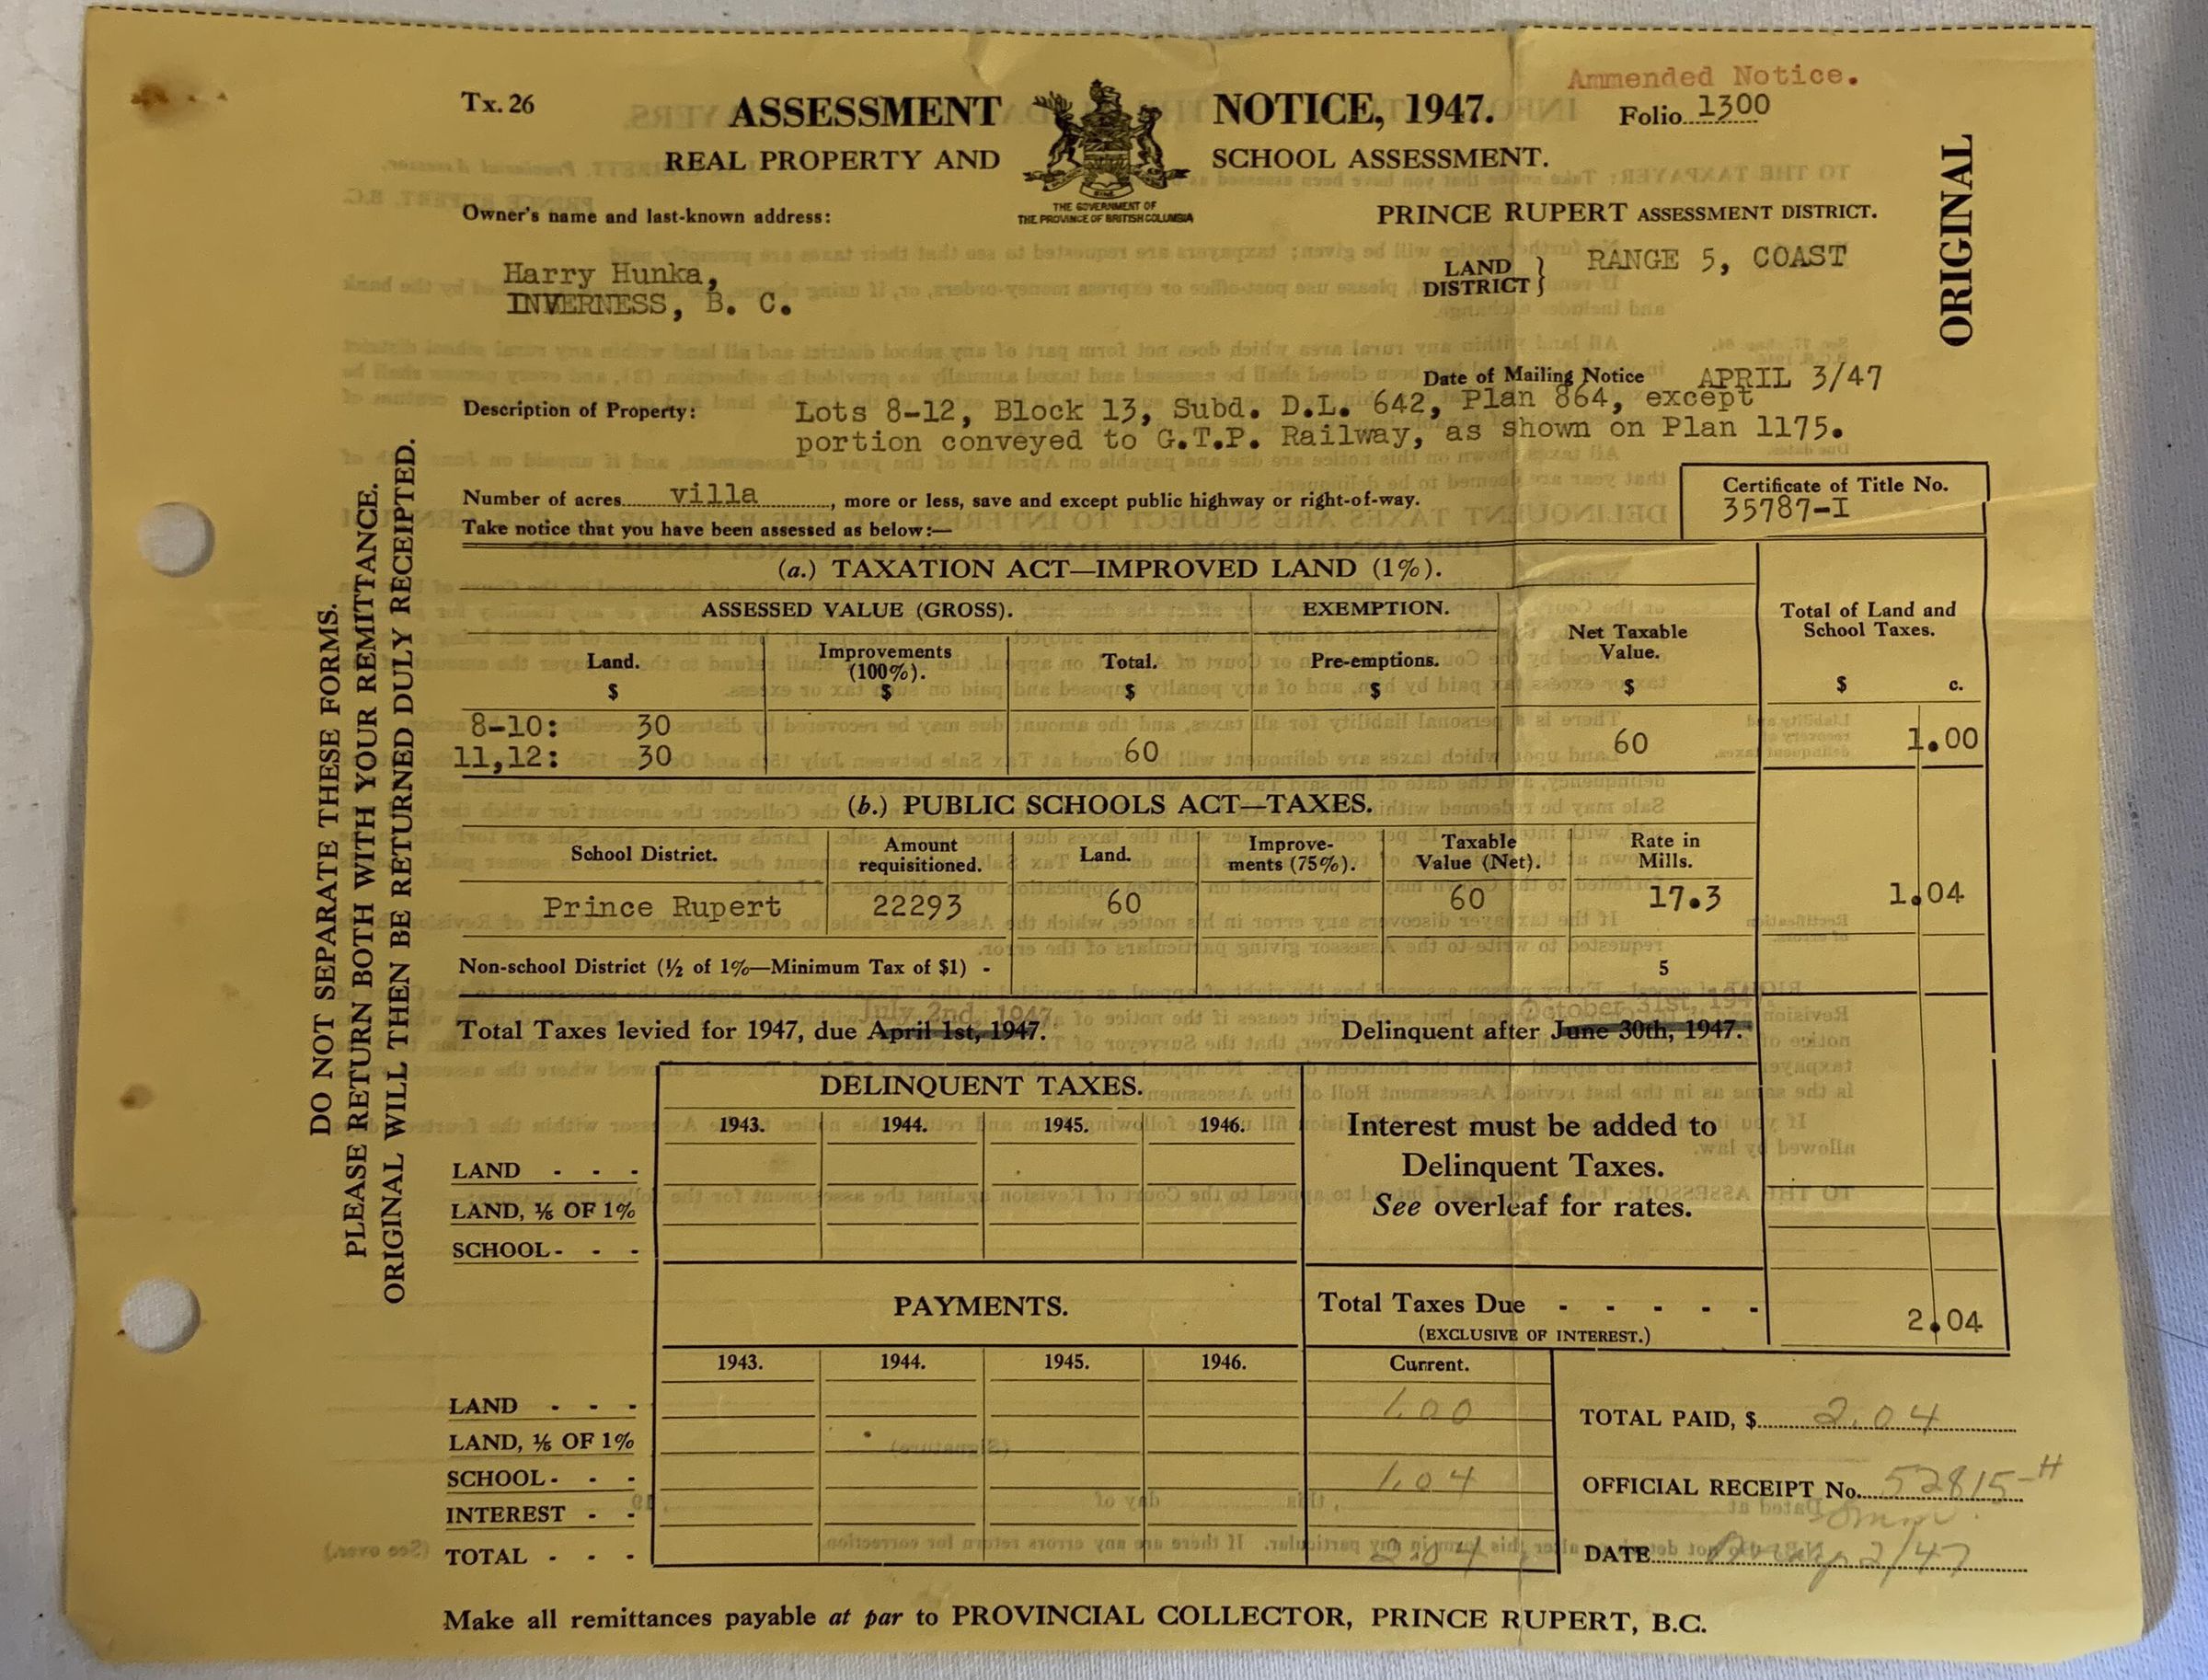 Ammended Notice.
Tx. 26
ASSESSMENT NOTICE, 1947.
Folio 1300
REAL PROPERTY AND SCHOOL ASSESSMENT.
THE GOVERNMENT OF
THE PROVINCE OF BRITISH COLUMBIA
ORIGINAL
Owner's name and last-known address:
PRINCE RUPERT ASSESSMENT DISTRICT.
Harry Hunka,
INVERNESS, B. C.
LAND DISTRICT } RANGE 5, COAST
Date of Mailing Notice APRIL 3/47
Description of Property: Lots 8-12, Block 13, Subd. D.L. 642, Plan 864, except
portion conveyed to G.T.P. Railway, as shown on Plan 1175.
Number of acres villa, more or less, save and except public highway or right-of-way.
Certificate of Title No.
35787-I
Take notice that you have been assessed as below:—
(a.) TAXATION ACT—IMPROVED LAND (1%).
ASSESSED VALUE (GROSS). EXEMPTION. Net Taxable Value. Total of Land and School Taxes.
Land. Improvements (100%). Total. Pre-emptions.
$ $ $ $ $ $ c.
8-10: 30
11,12: 30 60 60 1.00
(b.) PUBLIC SCHOOLS ACT—TAXES.
School District. Amount requisitioned. Land. Improve-ments (75%). Taxable Value (Net). Rate in Mills.
Prince Rupert 22293 60 60 17.3 1.04
Non-school District (½ of 1%—Minimum Tax of $1) - 5
July 2nd, 1947 October 31st, 194
Total Taxes levied for 1947, due April 1st, 1947. Delinquent after June 30th, 1947.
DELINQUENT TAXES.
1943. 1944. 1945. 1946.
LAND - - -
LAND, ⅕ OF 1%
SCHOOL - - -
Interest must be added to
Delinquent Taxes.
See overleaf for rates.
PAYMENTS.
Total Taxes Due - - - - - 2.04
(EXCLUSIVE OF INTEREST.)
1943. 1944. 1945. 1946. Current.
LAND - - - 1.00
LAND, ⅕ OF 1%
SCHOOL - - - 1.04
INTEREST - -
TOTAL - - - 2.04
TOTAL PAID, $ 2.04
OFFICIAL RECEIPT No. 52815-H
DATE 2/47
Make all remittances payable at par to PROVINCIAL COLLECTOR, PRINCE RUPERT, B.C.
DO NOT SEPARATE THESE FORMS.
PLEASE RETURN BOTH WITH YOUR REMITTANCE.
ORIGINAL WILL THEN BE RETURNED DULY RECEIPTED.